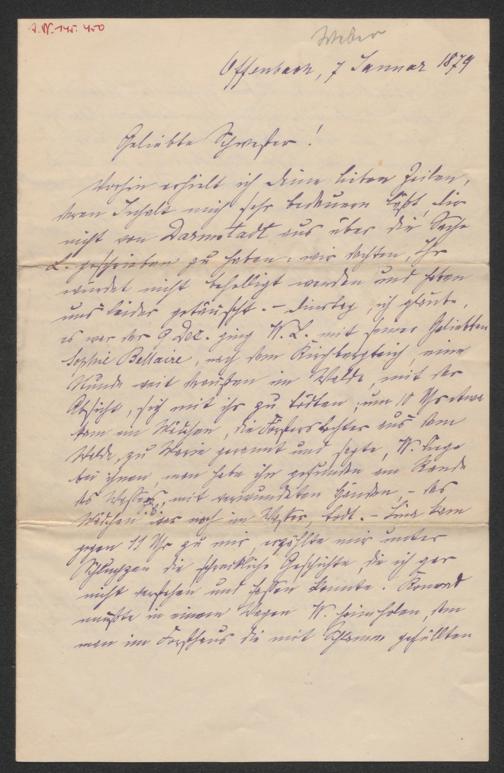 Weber
Offenbach, 7 Januar 1879
Geliebte Schwester!
Vorhin erhielt ich deine lieben Zeilen,
deren Inhalt mich sehr bedauern läßt, dir
nicht von Darmstadt aus über die Sache
L. geschrieben zu haben; wir dachten, Ihr
würdet nicht behelligt werden und haben
uns leider getäuscht. – Dinstag, ich glaube,
es war der 9 Dec. ging W. L. mit seiner Geliebten
Sophie Bellaire, nach dem eine
Stunde weit draußen im Walde, mit der
Absicht, sich mit ihr zu tödten; um 10 Uhr etwa
kam ein Mädchen, die Försterstochter aus dem
Walde, zu gerannt und sagte, W. liege
bei ihnen, man habe ihn gefunden am Rande
des Wassers, mit verwundeten Händen, – das
Mädchen S. B. war noch im Wasser, todt. – kam
gegen 11 Uhr zu mir, erzählte mir unter
Schluchzen die schreckliche Geschichte, die ich gar
nicht verstehen und fassen konnte. Konrad
mußte in einem Wagen W. heimholen, dem
man im Forsthaus die mit Schlamm gefüllten